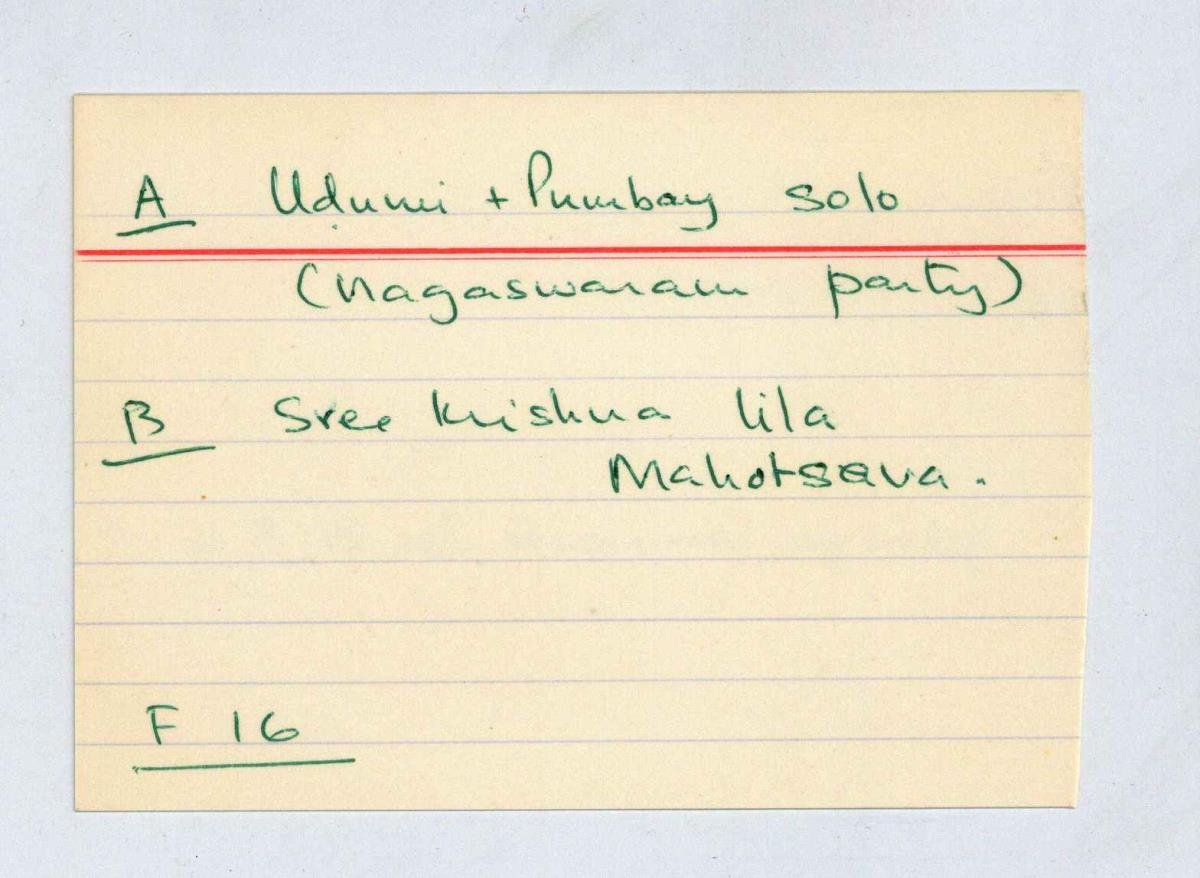 A Udumi + Pumbay solo
(nagaswaram party)
B Sree Krishna lila
Mahotsava.
F 16